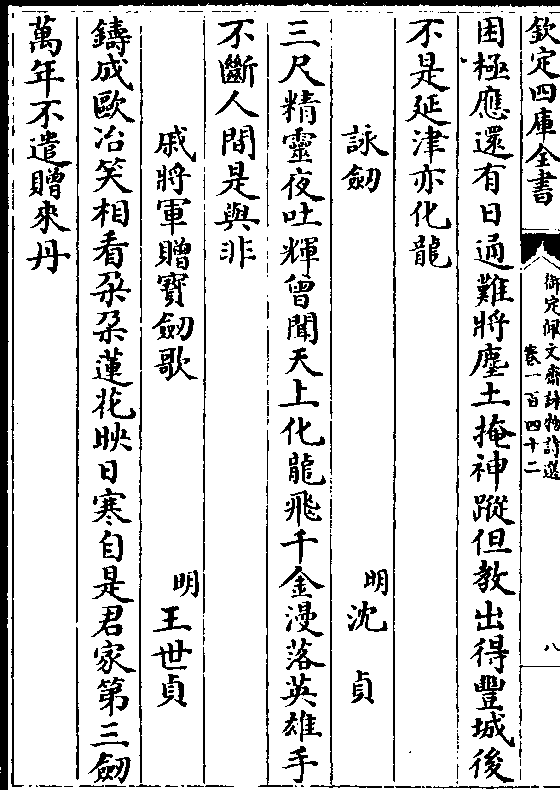 欽定四庫全書
御定佩文齋詠物詩選
卷一百四十二
八
困極應還有日通難將塵土掩神蹤但教出得豐城後
不是延津亦化龍
詠劒
明沈貞
三尺精靈夜吐輝曾聞天上化龍飛千金漫落英雄手
不斷人間是與非
戚將軍贈寶劒歌
明王世貞
鑄成歐冶笑相看朶朶蓮花映日寒自是君家第三劒
萬年不遣贈來丹